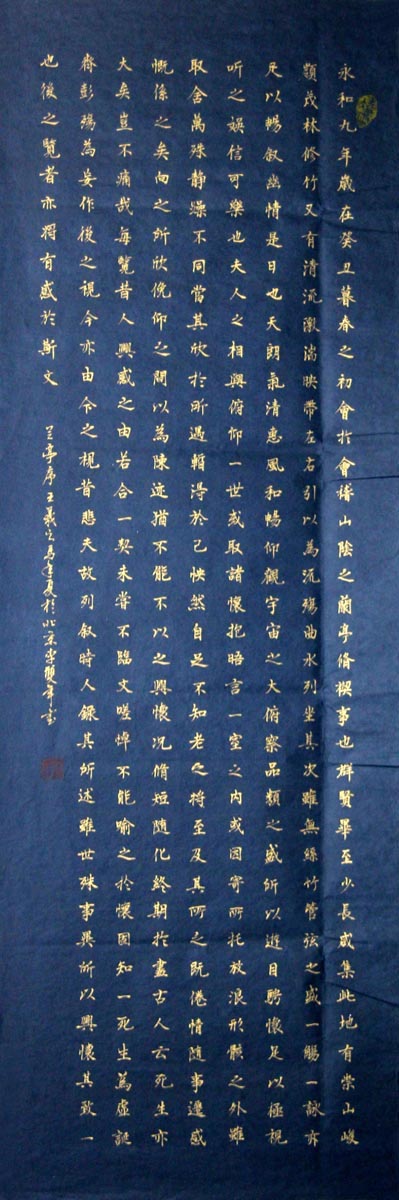 永和九年歲在癸丑暮春之初會於會稽山陰之蘭亭脩禊事也群賢畢至少長咸集此地有崇山峻
領茂林修竹又有清流激湍映帶左右引以為流觴曲水列坐其次雖無絲竹管弦之盛一觴一詠亦
足以暢敘幽情是日也天朗氣清惠風和暢仰觀宇宙之大俯察品類之盛所以遊目騁懷足以極視
听之娛信可樂也夫人之相與俯仰一世或取諸懷抱晤言一室之內或因寄所托放浪形骸之外雖
取舍萬殊静躁不同當其欣於所遇暫得於己怏然自足不知老之將至及其所之既倦情隨事遷感
慨係之矣向之所欣俛仰之間以為陳迹猶不能不以之興懷况脩短隨化終期於盡古人云死生亦
大矣豈不痛哉每覽昔人興感之由若合一契未嘗不臨文嗟悼不能喻之於懷固知一死生為虛誕
齊彭殤為妄作後之視今亦由今之視昔悲夫故列敘時人錄其所述雖世殊事異所以興懷其致一
也後之覽者亦將有感於斯文
兰亭序王羲之馬年夏於北京李雙年書